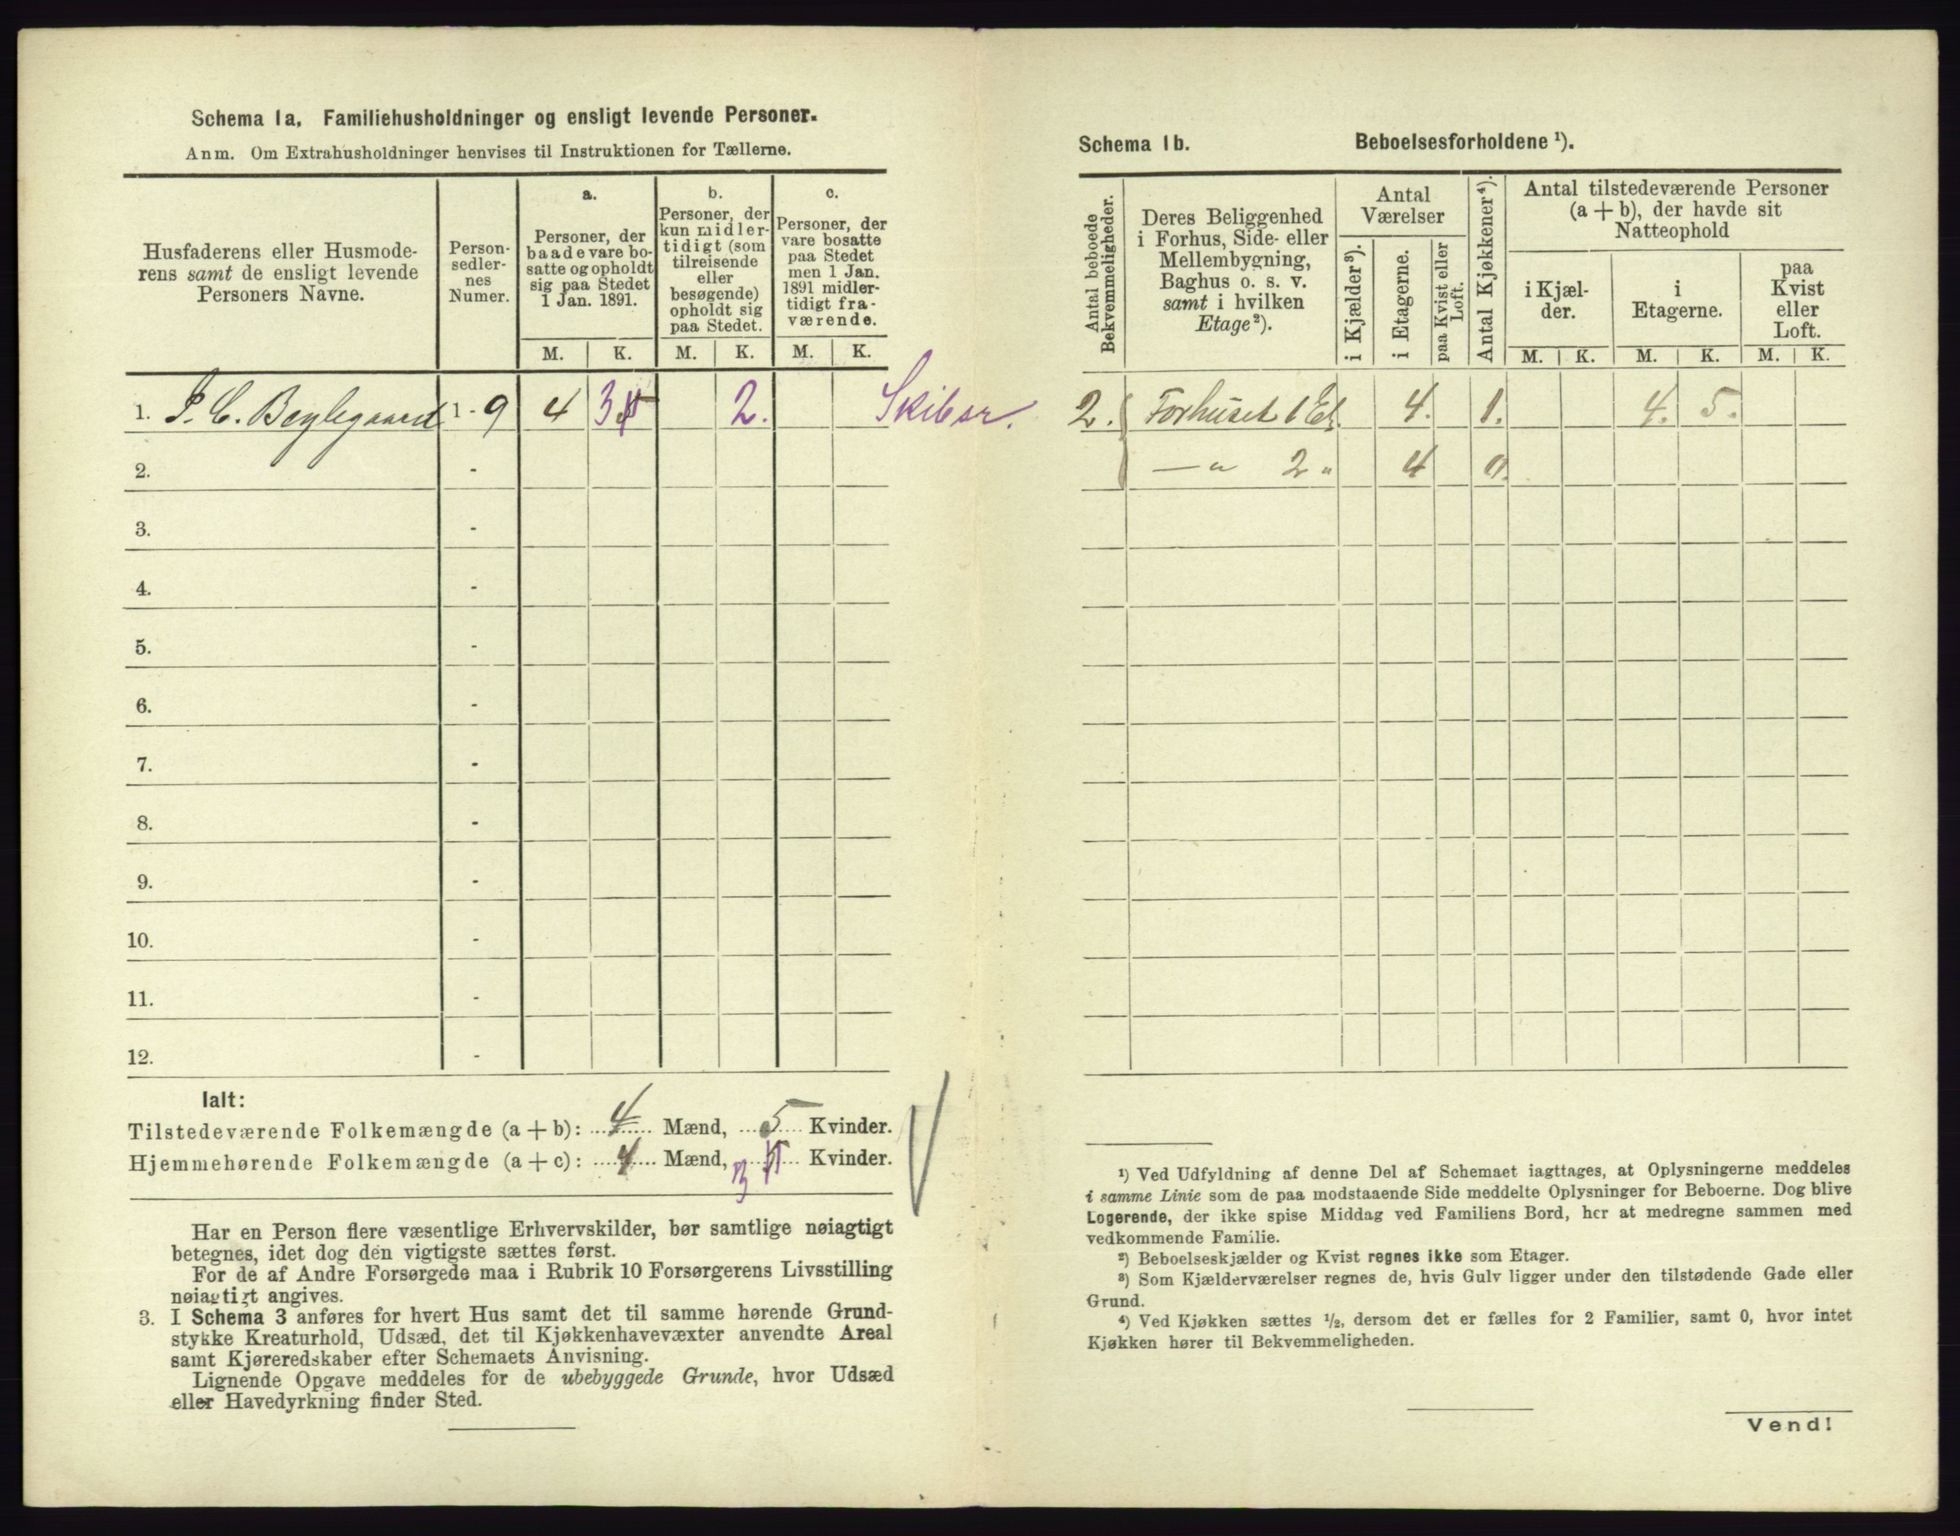 Schema 1a. Familiehusholdninger og ensligt levende Personer.
Anm. Om Extrahusholdninger henvises til Instruktionen for Tællerne.
Husfaderens eller Husmode-
rens samt de ensligt levende
Personers Navne.
Person-
sedler-
nes
Numer.
a.
Personer, der
baade vare bo-
satte og opholdt
sig paa Stedet
1 Jan. 1891.
b.
Personer, der
kun midler-
tidigt (som
tilreisende
eller
besøgende)
opholdt sig
paa Stedet.
c.
Personer, der
vare bosatte
paa Stedet
men 1 Jan.
1891 midler-
tidigt fra-
værende.
M. K. M. K. M. K.
1. P. C. Beylegaard 1 - 9 4 3 5 2. Skibsr.
2. -
3. -
4. -
5. -
6. -
7. -
8. -
9. -
10. -
11. -
12. -
Ialt:
Tilstedeværende Folkemængde (a + b): 4 Mænd, 5 Kvinder.
Hjemmehørende Folkemængde (a + c): 4 Mænd, 3 5 Kvinder.
Har en Person flere væsentlige Erhvervskilder, bør samtlige nøiagtigt
betegnes, idet dog den vigtigste sættes først.
For de af Andre Forsørgede maa i Rubrik 10 Forsørgerens Livsstilling
nøiagtigt angives.
3. I Schema 3 anføres for hvert Hus samt det til samme hørende Grund-
stykke Kreaturhold, Udsæd, det til Kjøkkenhavevæxter anvendte Areal
samt Kjøreredskaber efter Schemaets Anvisning.
Lignende Opgave meddeles for de ubebyggede Grunde, hvor Udsæd
eller Havedyrkning finder Sted.
Schema 1b. Beboelsesforholdene ¹).
Antal beboede
Bekvemmeligheder.
Deres Beliggenhed
i Forhus, Side- eller
Mellembygning,
Baghus o. s. v.
samt i hvilken
Etage²).
Antal
Værelser
i Kjælder³).
i Etagerne.
paa Kvist eller
Loft.
Antal Kjøkkener⁴).
Antal tilstedeværende Personer
(a + b), der havde sit
Natteophold
i Kjæl-
der.
i
Etagerne.
paa
Kvist
eller
Loft.
M. K. M. K. M. K.
2. Forhuset 1 Et. 4. 1. 4. 5.
— „ 2 „ 4 0.
¹) Ved Udfyldning af denne Del af Schemaet iagttages, at Oplysningerne meddeles
i samme Linie som de paa modstaaende Side meddelte Oplysninger for Beboerne. Dog blive
Logerende, der ikke spise Middag ved Familiens Bord, her at medregne sammen med
vedkommende Familie.
²) Beboelseskjælder og Kvist regnes ikke som Etager.
³) Som Kjælderværelser regnes de, hvis Gulv ligger under den tilstødende Gade eller
Grund.
⁴) Ved Kjøkken sættes ½, dersom det er fælles for 2 Familier, samt 0, hvor intet
Kjøkken hører til Bekvemmeligheden.
Vend!